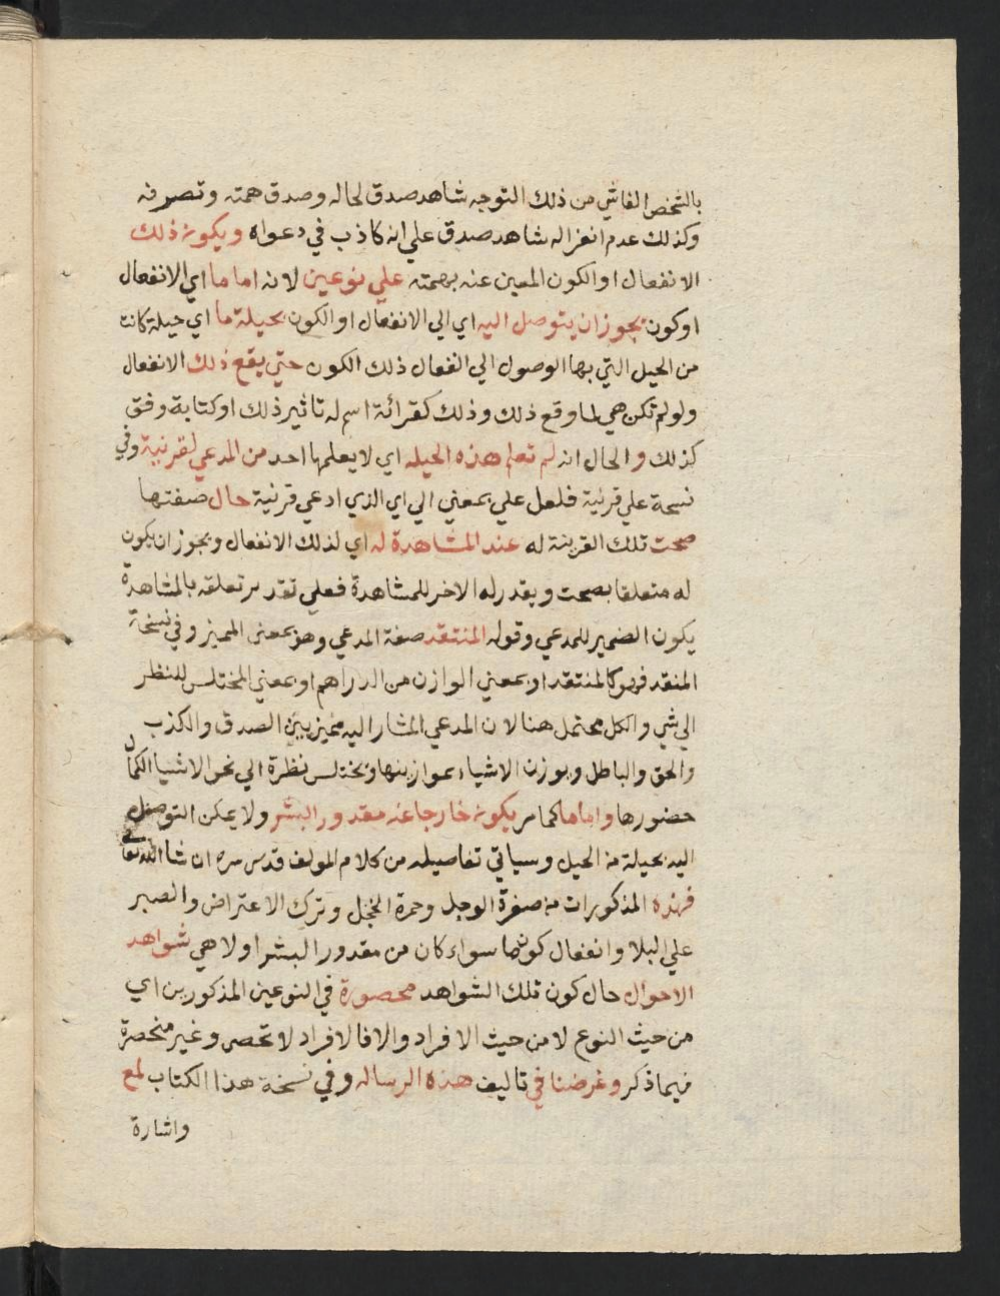 بالشخص الفاش من ذلك التوجه شاهد صدق لحاله وصدق همته وتصرفه
وكذلك عدم انفعاله شاهد صدق علي انه كاذب في دعواه ويكون ذلك
الانفعال او الكون المعين عنه بهمته علي نوعين لانه اما ما اي الانفعال
او كون يجوز ان يتوصل اليه اي الي الانفعال او الكون بحيلة ما اي حيلة كانت
من الحيل التي بها الوصول الي انفعال ذلك الكون حتي يقع ذلك الانفعال
ولو لم تكن هي لما وقع ذلك وذلك كقرائة اسم له تاثير ذلك او كتابة وفق
كذلك والحال انه لم تعلم هذه الحيله اي لا يعلمها احد من المدعي لقرنية وفي
نسخة علي قرنية فلعل علي بمعني الي اي الذي ادعي قرنية حال صفتها
صحت تلك القرينة له عند المشاهدة له اي لذلك الانفعال ويجوز ان يكون
له متعلقا بصحت ويقدر له الاخر للمشاهدة فعلي تقدير تعلقه بالمشاهدة
يكون الضمير للمدعي وقوله المنتقد صفة المدعي وهو بمعني المميز وفي نسخة
المنقد فهو كالمنتقد او بمعني الوازن من الدراهم او بمعني المختلس للنظر
الي شي والكل محتمل هنا لان المدعي المشار اليه مميز بين الصدق والكذب
والحق والباطل ويوزن الاشياء بموازينها ويختلس نظرة الي نحو الاشيا الكمال
حضورها واما ما كما مر يكون خارجا عنه مقدور البشر ولا يمكن التوصل
اليه بحيلة من الحيل وسياتي تفاصيله من كلام المولف قدس سره ان شا الله تعالى
فهذه المذكورات من صفرة الوجل وحمرة الخجل وترك الاعتراض والصبر
علي البلا وانفعال كونهما سواء كان من مقدور البشر او لا هي شواهد
الاحوال حال كون تلك الشواهد محصورة في النوعين المذكورين اي
من حيث النوع لا من حيث الافراد والا فالافراد لا تحصر وغير منحصرة
فيما ذكر وغرضنا في تاليف هذه الرساله وفي نسخة هذا الكتاب لمع
واشارة